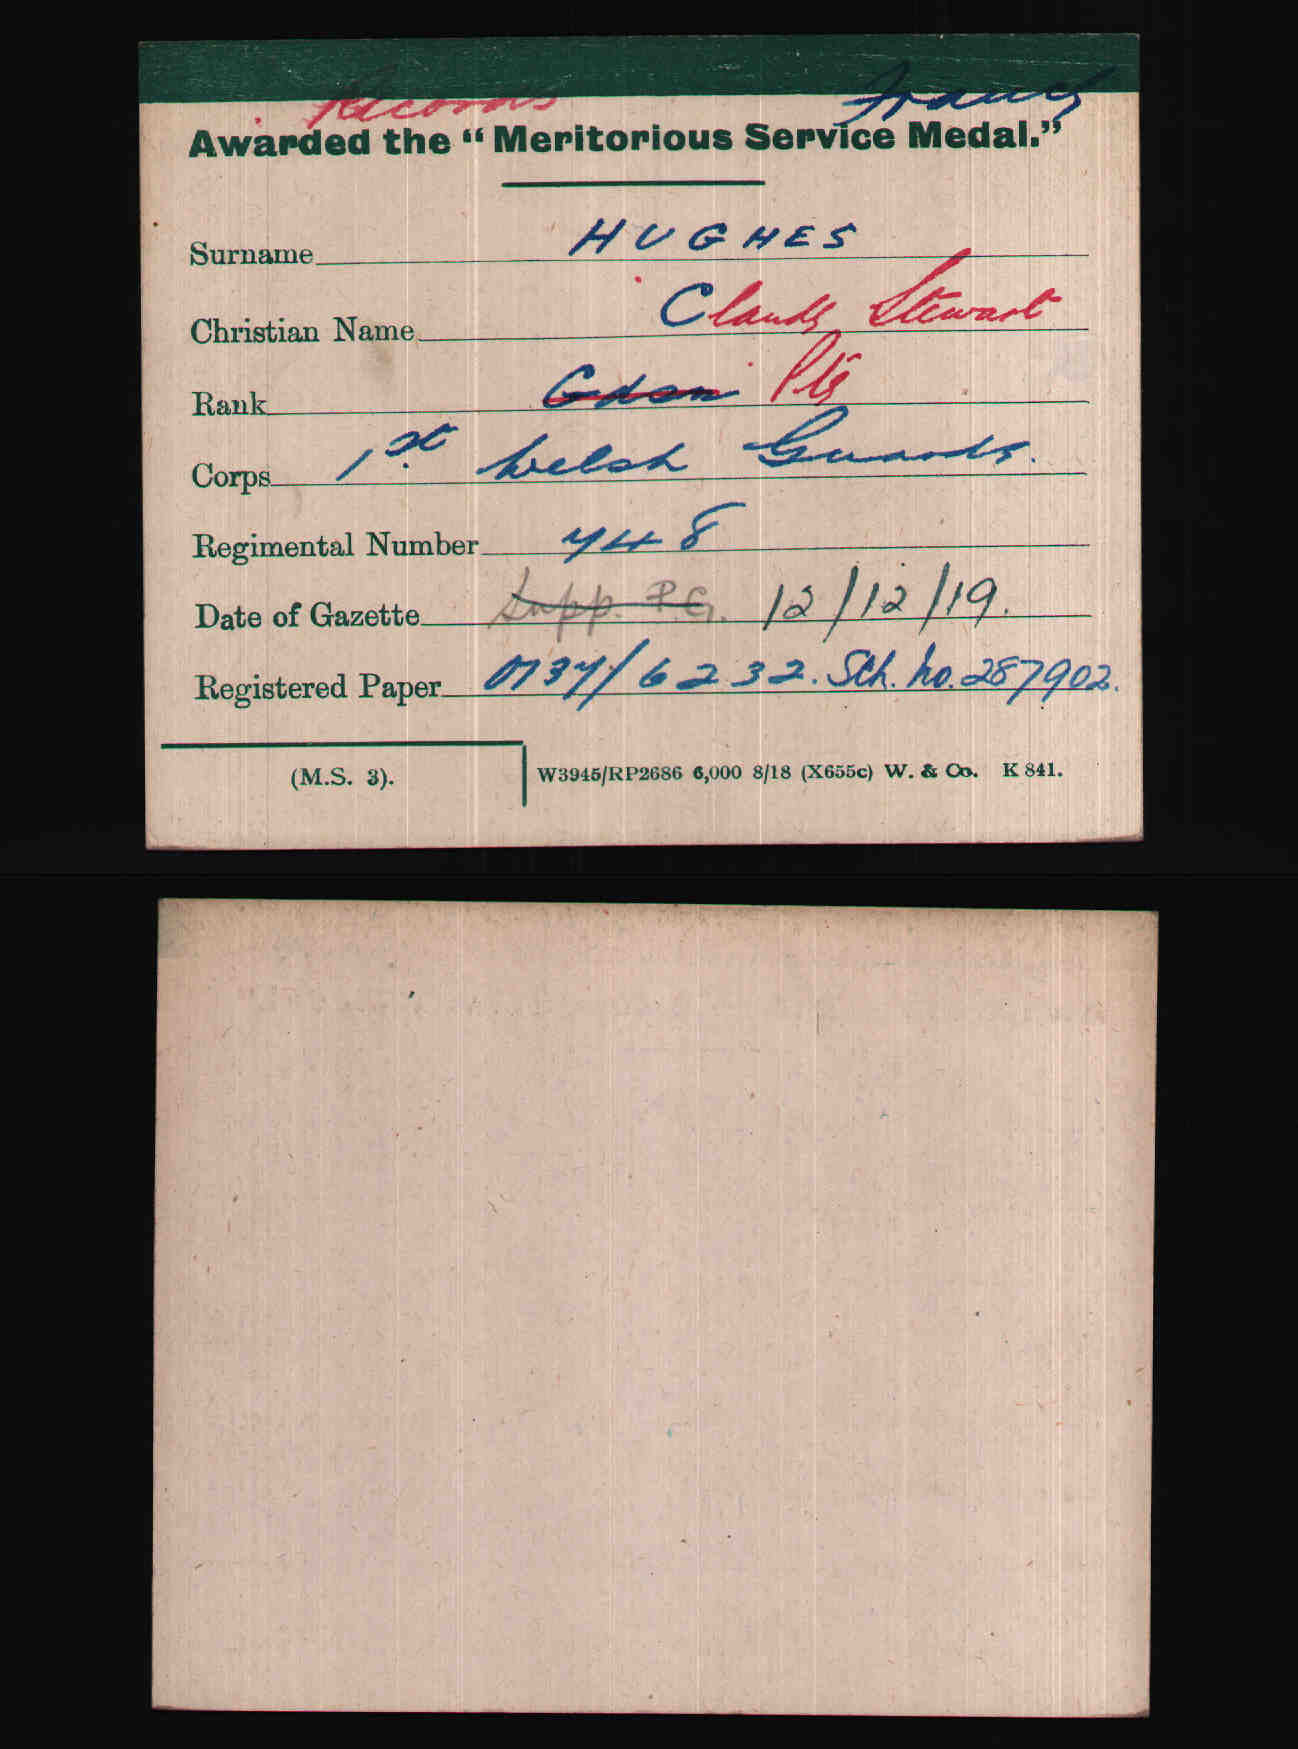 Records France
Awarded the “Meritorious Service Medal.”
Surname HUGHES
Christian Name Claude Stewart
Rank Gdsn Pte
Corps 1st Welsh Guards.
Regimental Number 748
Date of Gazette Supp. P.G. 12/12/19.
Registered Paper 0137/6232. Sch. No. 287902.
(M.S. 3). W3945/RP2686 6,000 8/18 (X655c) W. & Co. K 841.